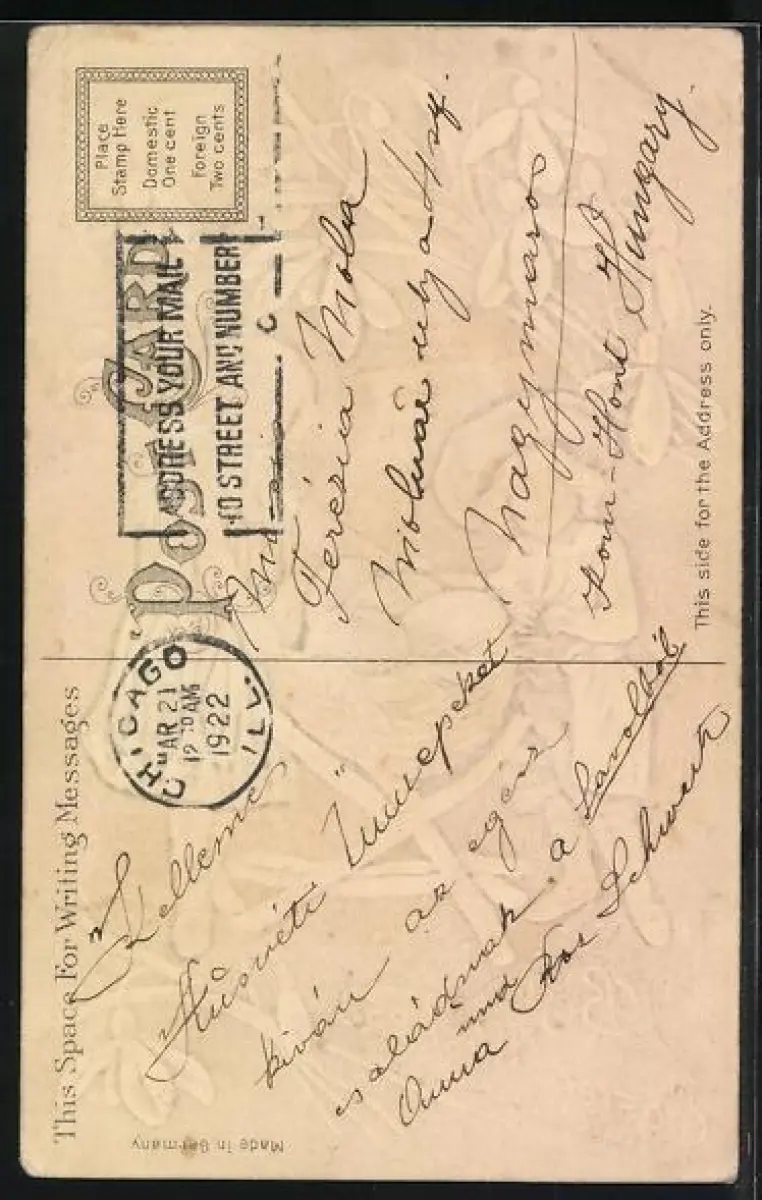 This Space For Writing Messages
Post Card
Place
Stamp Here
Domestic
One cent
Foreign
Two cents
CHICAGO
MAR 21
12 30 AM
1922
ILL.
ADDRESS YOUR MAIL
TO STREET AND NUMBER
Kellemes
Húsvéti Ünnepeket
kiván az egész
családnak a távolból
Anna und Schwartz
Terézia
Molnár
Nagymaros
Hont Hungary.
This side for the Address only.
Made in Germany